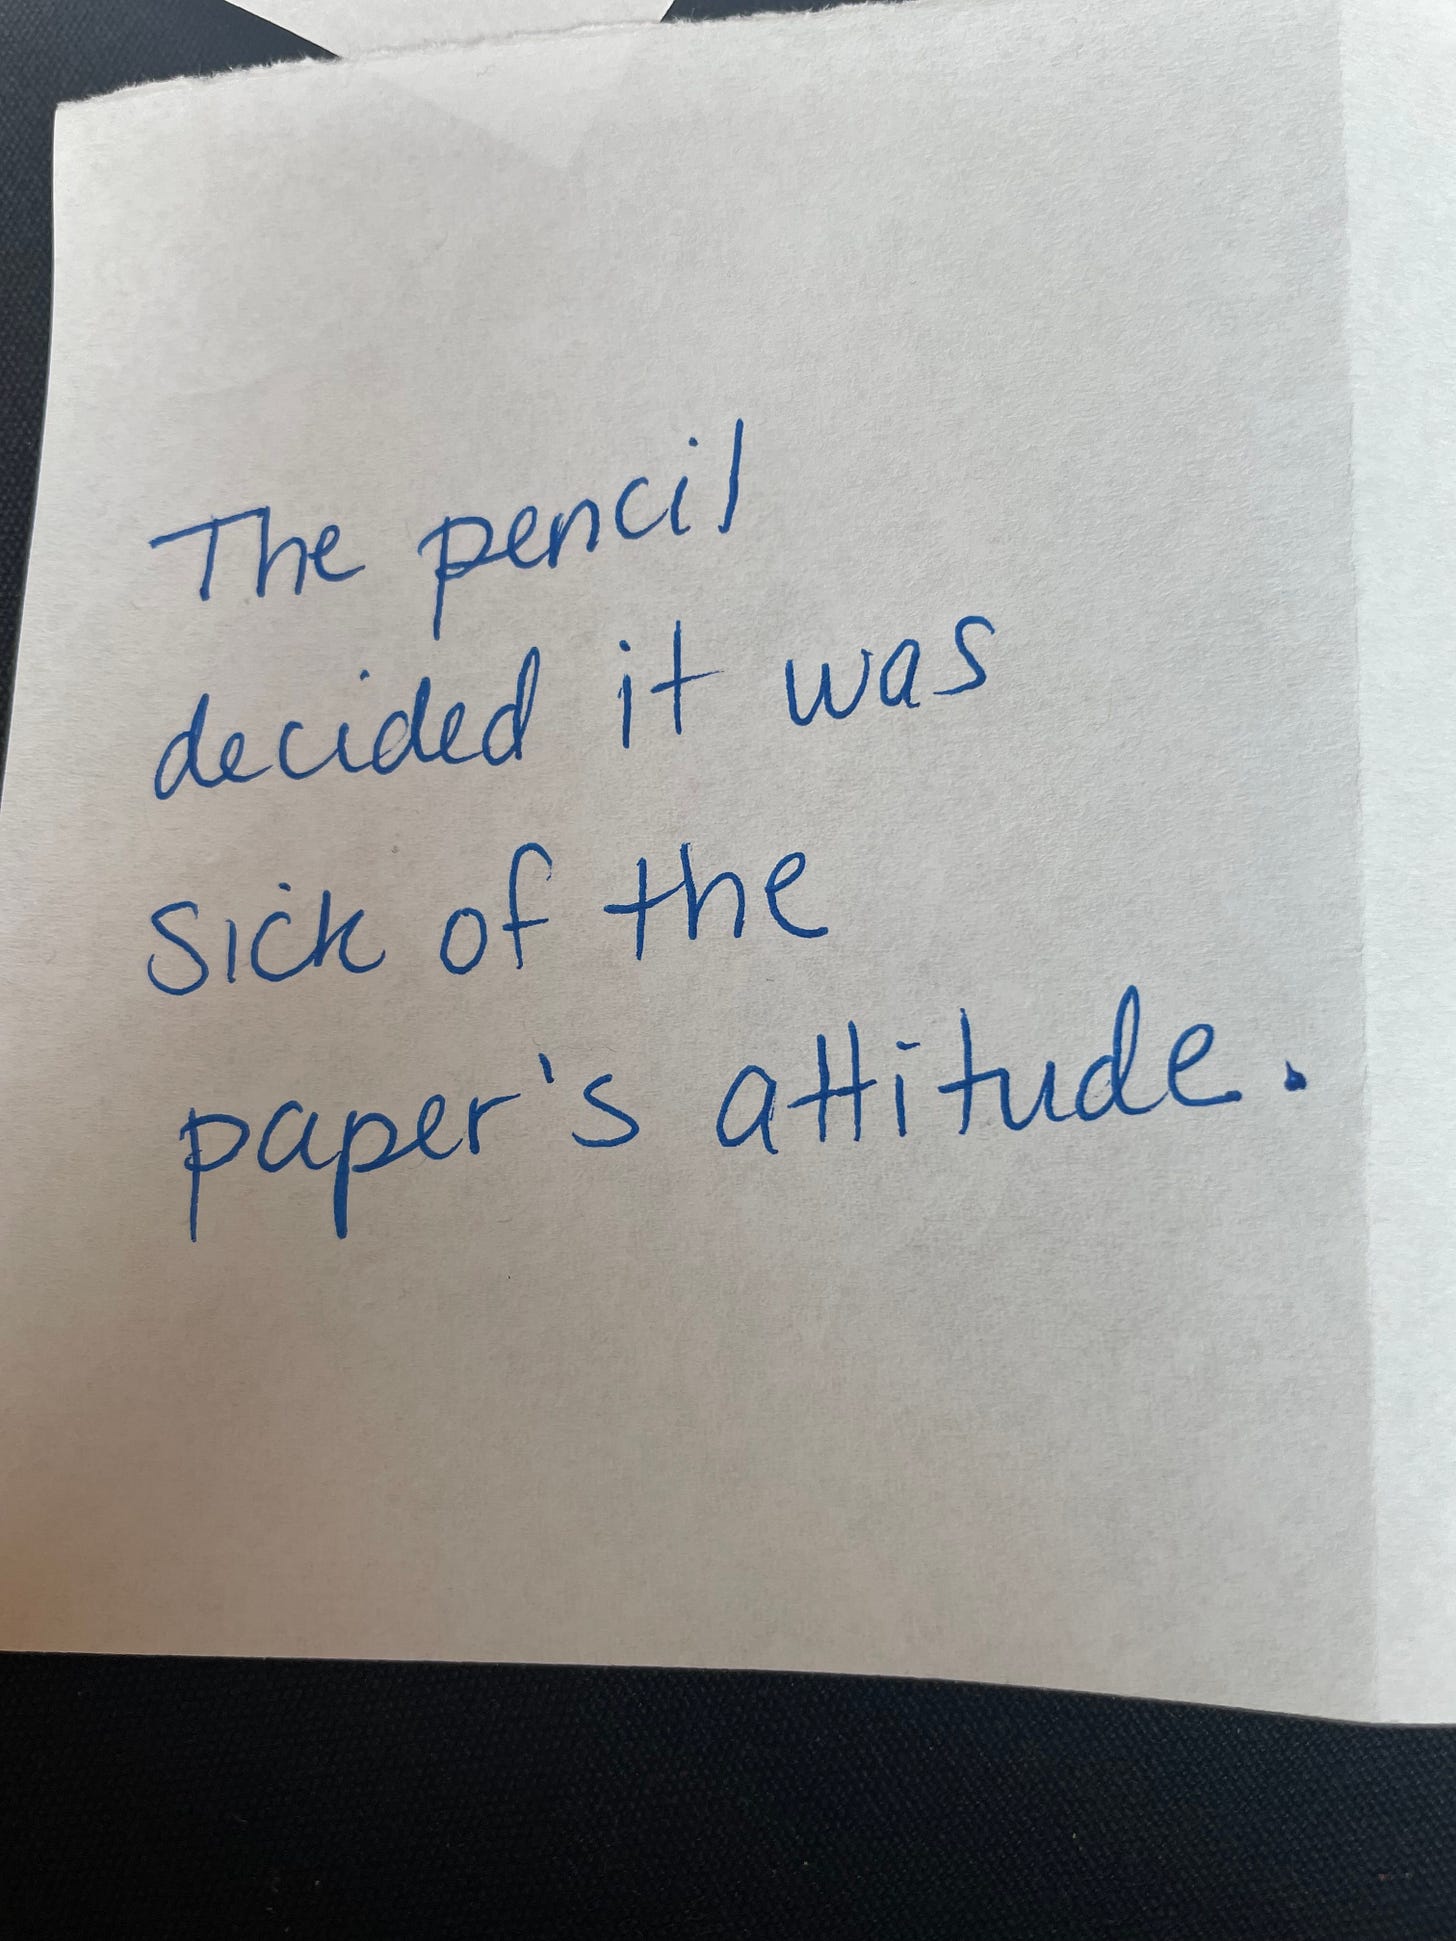 The pencil
decided it was
sick of the
paper's attitude.